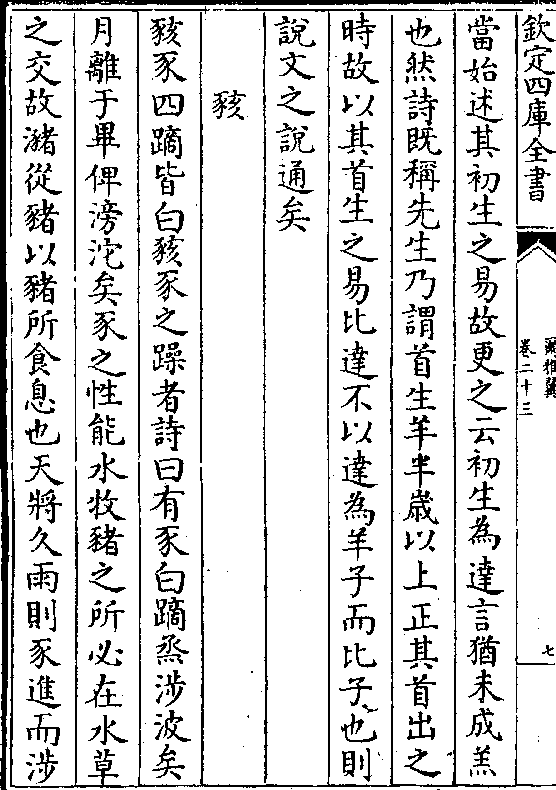 欽定四庫全書
爾雅翼
卷二十三
七
當始述其初生之易故更之云初生為達言猶未成羔
也然詩既稱先生乃謂首生羊半歳以上正其首出之
時故以其首生之易比達不以達為羊子而比子也則
說文之說通矣
豥
豥豕四蹢皆白豥豕之躁者詩曰有豕白蹢烝涉波矣
月離于畢俾滂沱矣豕之性能水牧豬之所必在水草
之交故瀦從豬以豬所食息也天將久雨則豕進而涉